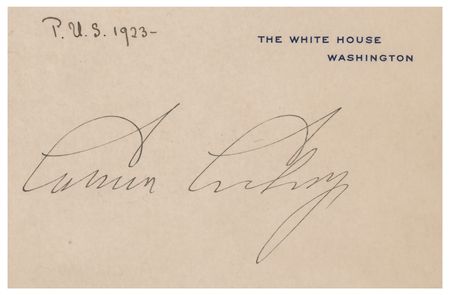 P.U.S. 1923-
THE WHITE HOUSE
WASHINGTON
Calvin Coolidge